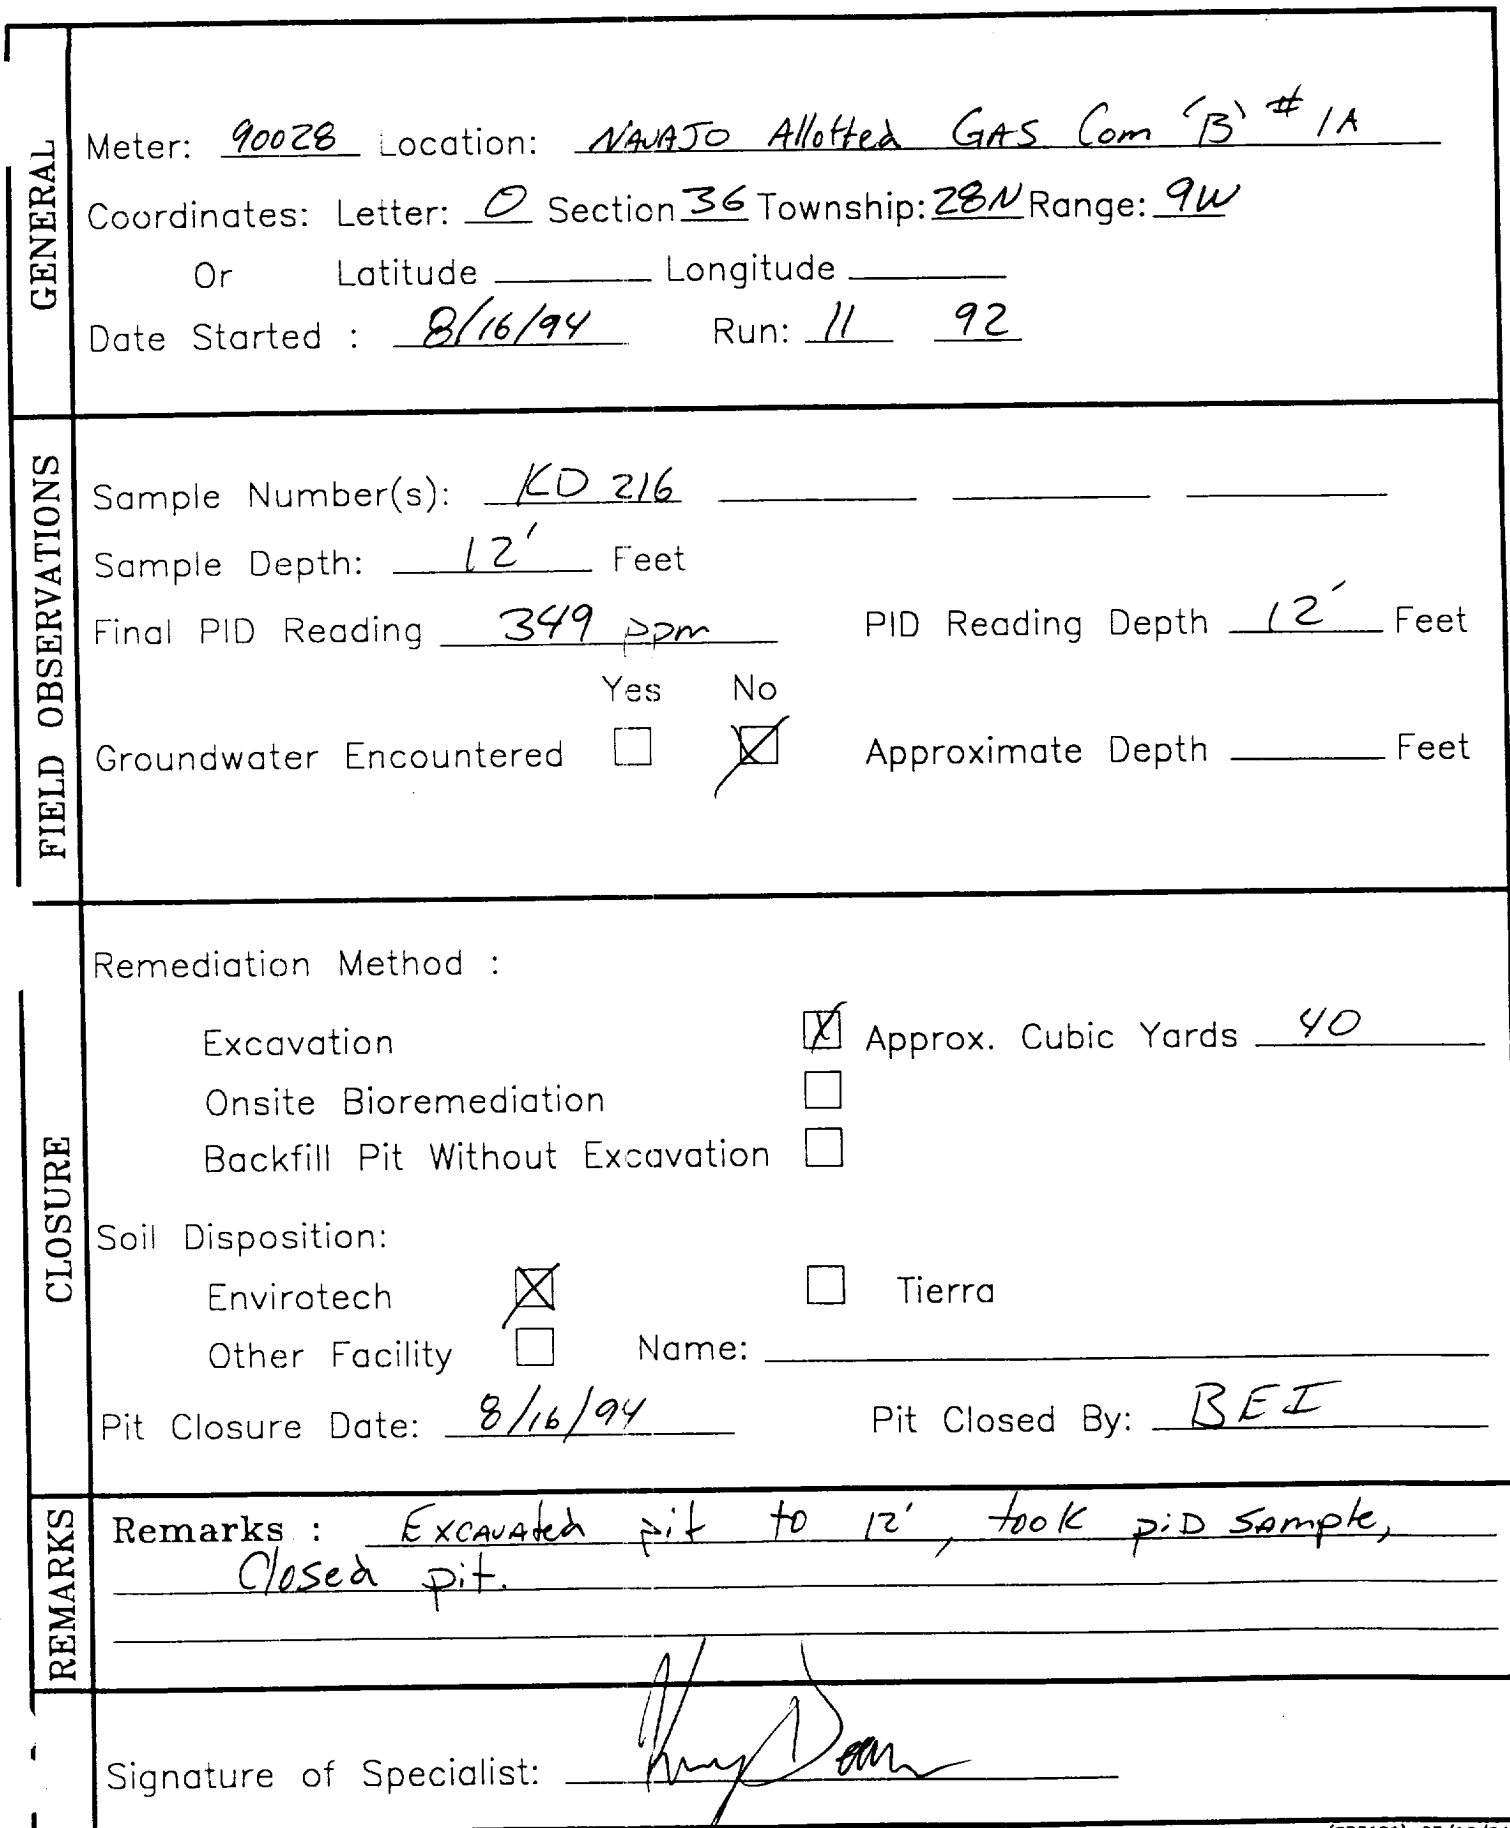 GENERAL
Meter: 90028 Location: NAVAJO Allotted GAS Com 'B' # 1A
Coordinates: Letter: O Section 36 Township: 28N Range: 9W
Or Latitude ______ Longitude ______
Date Started : 8/16/94 Run: 11 92
FIELD OBSERVATIONS
Sample Number(s): KD 216
Sample Depth: 12' Feet
Final PID Reading 349 ppm PID Reading Depth 12' Feet
Yes No
Groundwater Encountered ☐ ☒ Approximate Depth ______ Feet
CLOSURE
Remediation Method :
Excavation ☒ Approx. Cubic Yards 40
Onsite Bioremediation ☐
Backfill Pit Without Excavation ☐
Soil Disposition:
Envirotech ☒ ☐ Tierra
Other Facility ☐ Name: ______
Pit Closure Date: 8/16/94 Pit Closed By: BEI
REMARKS
Remarks : Excavated pit to 12', took piD sample,
Closed pit.
Signature of Specialist: